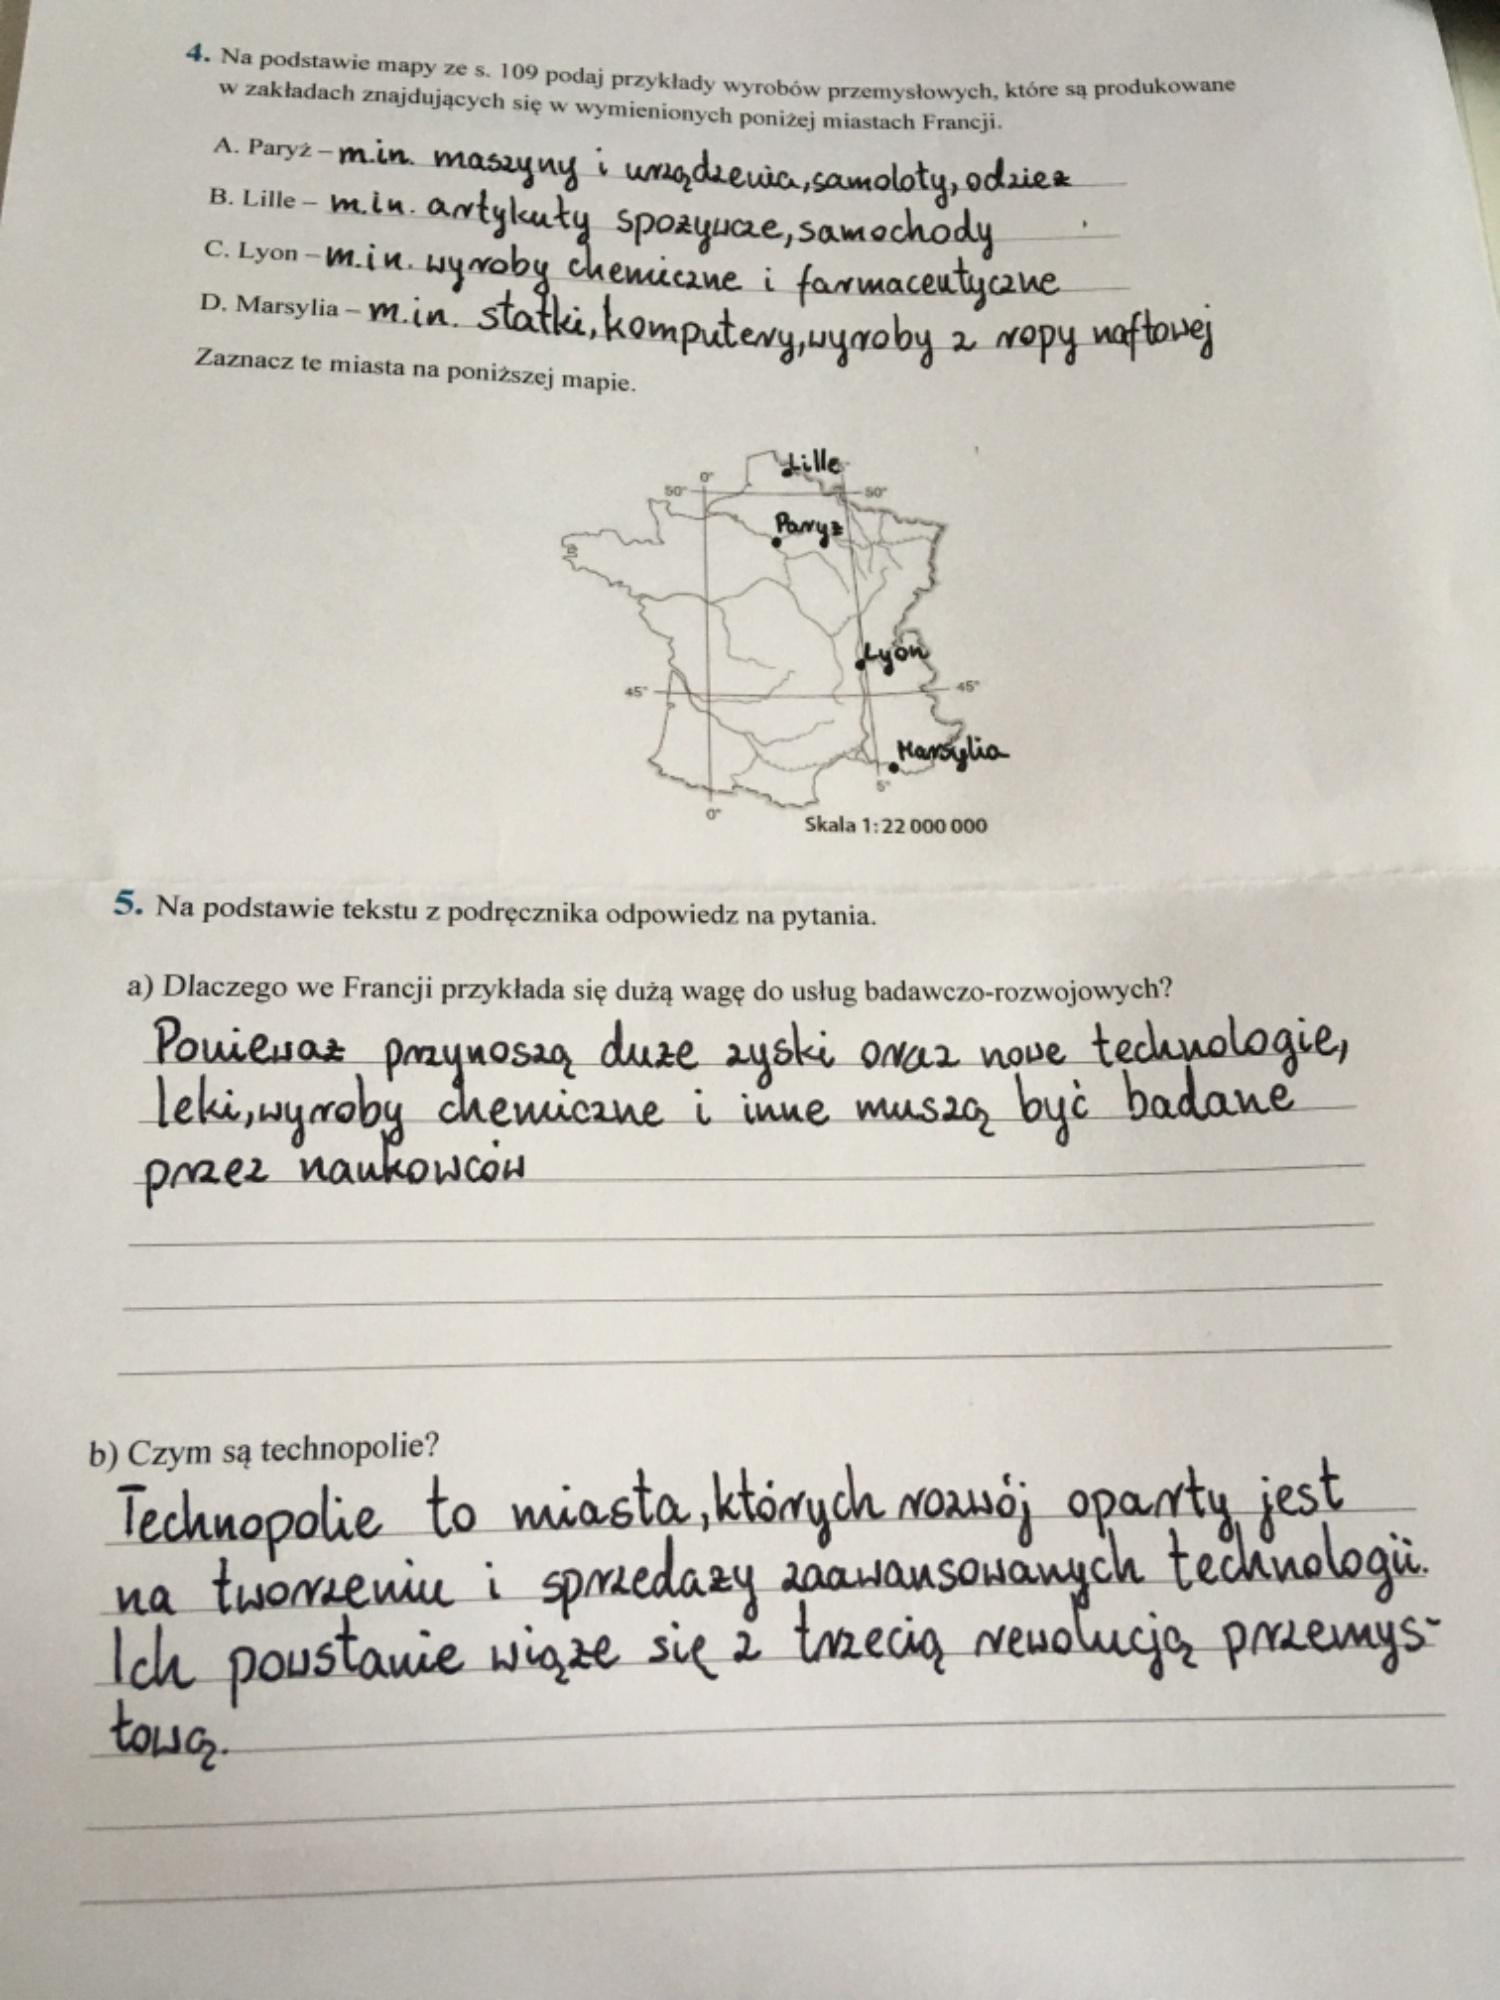 4. Na podstawie mapy ze s. 109 podaj przykłady wyrobów przemysłowych, które są produkowane
w zakładach znajdujących się w wymienionych poniżej miastach Francji.
A. Paryż – m.in. maszyny i urządzenia, samoloty, odzież
B. Lille – m.in. artykuły spożywcze, samochody
C. Lyon – m.in. wyroby chemiczne i farmaceutyczne
D. Marsylia – m.in. statki, komputery, wyroby z ropy naftowej
Zaznacz te miasta na poniższej mapie.
Lille
0°
50° 50°
Paryż
Lyon
45° 45°
Marsylia
5°
0°
Skala 1:22 000 000
5. Na podstawie tekstu z podręcznika odpowiedz na pytania.
a) Dlaczego we Francji przykłada się dużą wagę do usług badawczo-rozwojowych?
Ponieważ przynoszą duże zyski oraz nowe technologie,
leki, wyroby chemiczne i inne muszą być badane
przez naukowców
b) Czym są technopolie?
Technopolie to miasta, których rozwój oparty jest
na tworzeniu i sprzedaży zaawansowanych technologii.
Ich powstanie wiąże się z trzecią rewolucją przemys-
łową.